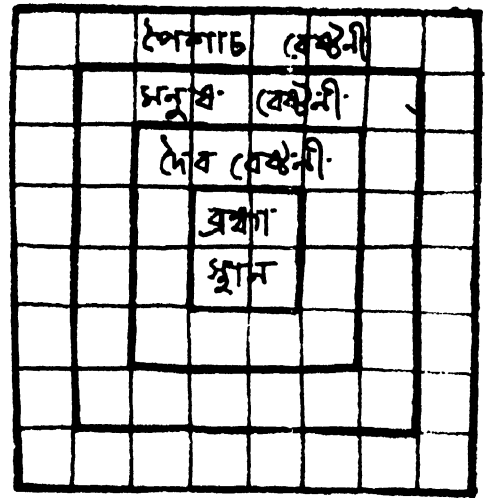 পৈশাচ বেষ্টনী
মনুষ বেষ্টনী
দৈব বেষ্টনী
ব্রহ্মা
স্থান